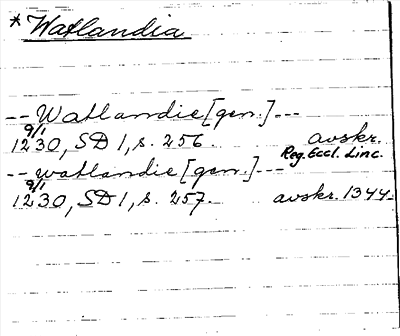 *Watlandia
-- Watlandie [gen.] ---
9/1
1230, SD 1, s. 256. avskr.
Reg. Eccl. Linc.
-- watlandie [gen.] ---
9/1
1230, SD 1, s. 257. avskr. 1344.